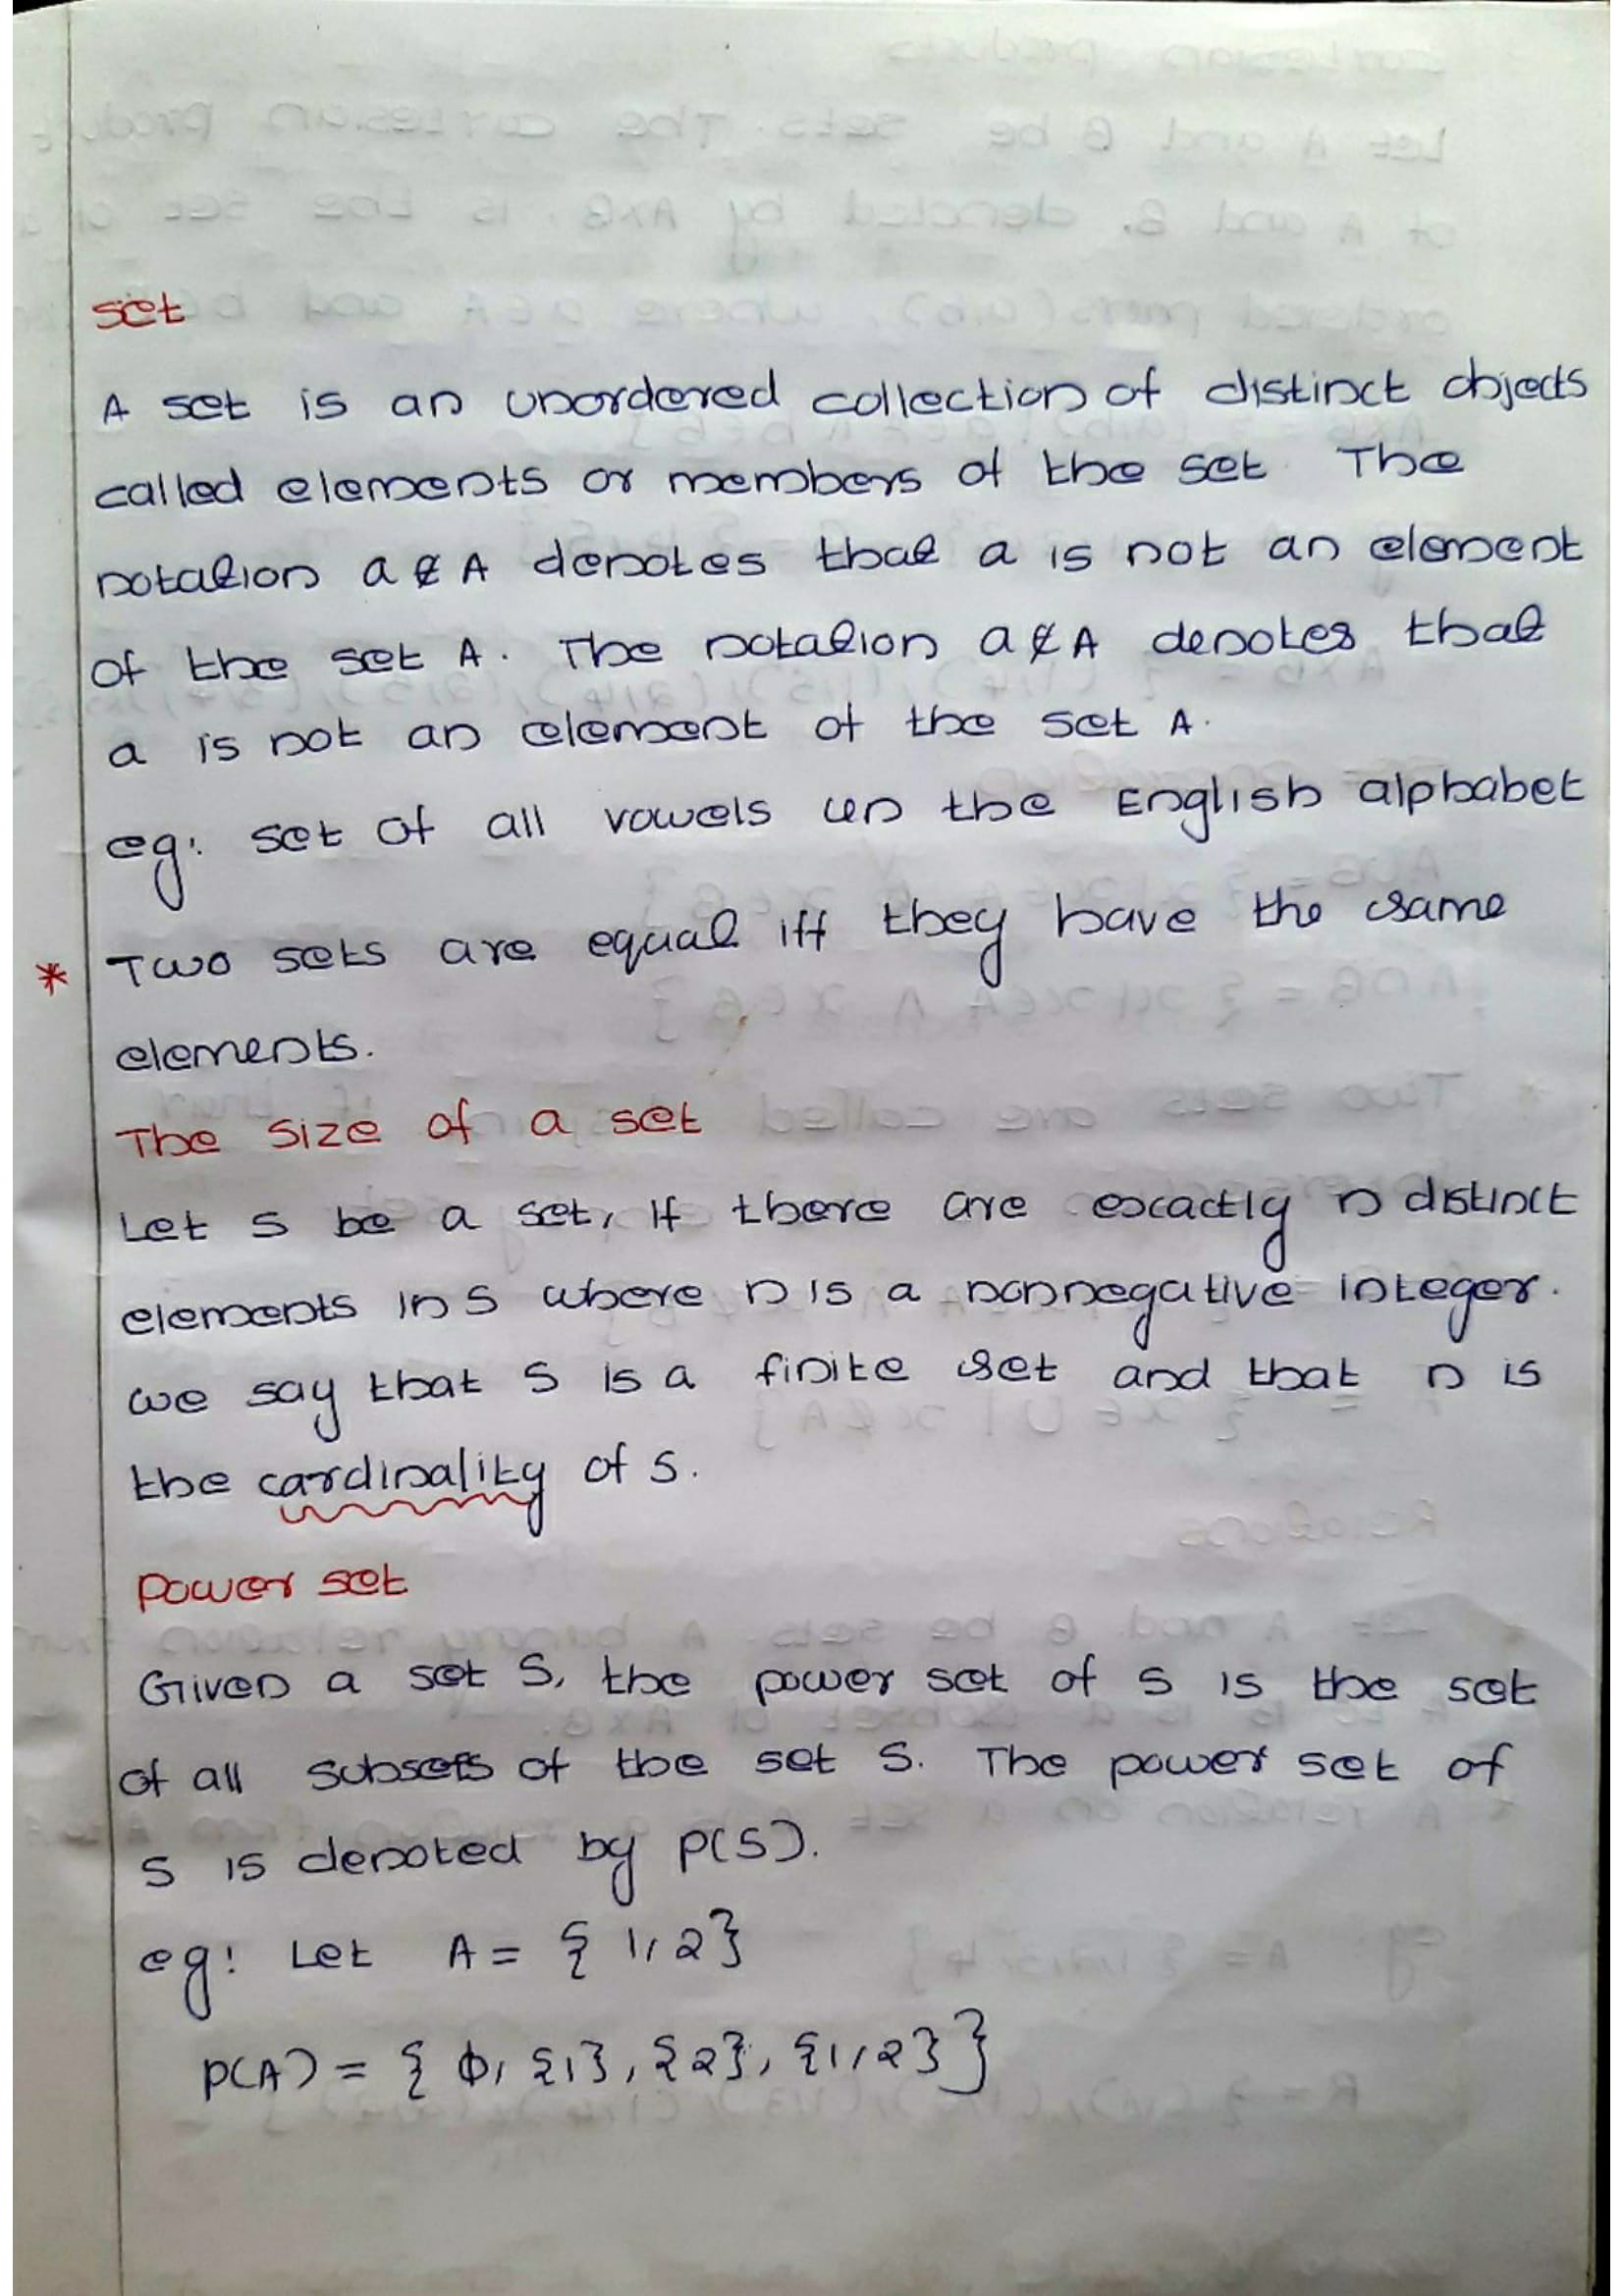 set
A set is an unordered collection of distinct objects
called elements or members of the set. The
notation a ∉ A denotes that a is not an element
of the set A. The notation a ∉ A denotes that
a is not an element of the set A.
eg: set of all vowels in the English alphabet
* Two sets are equal iff they have the same
elements.
The size of a set
Let S be a set, if there are exactly n distinct
elements in S where n is a nonnegative integer.
we say that S is a finite set and that n is
the cardinality of S.
Power set
Given a set S, the power set of S is the set
of all subsets of the set S. The power set of
S is denoted by P(S).
eg: Let A = { 1, 2}
P(A) = { ϕ, {1}, {2}, {1, 2} }